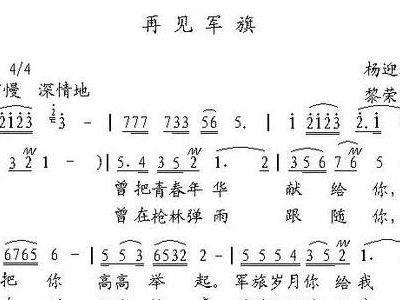 再见军旗
4/4 杨迎
慢 深情地 黎荣
2123 2123 3 - | 777 733 56 5. | i 2123 2.
3 2 1 - )| 5. 4 3 5 2 | 1 . 2 | 3 5 6 7 6
曾把青春年华 献给你,
曾在枪林弹雨 跟随你,
6765 6 - | 5 5 3 6532 2 . | 5 5 5 4 3 5 2 | 1 .
把你 高高举起。军旅岁月你给我